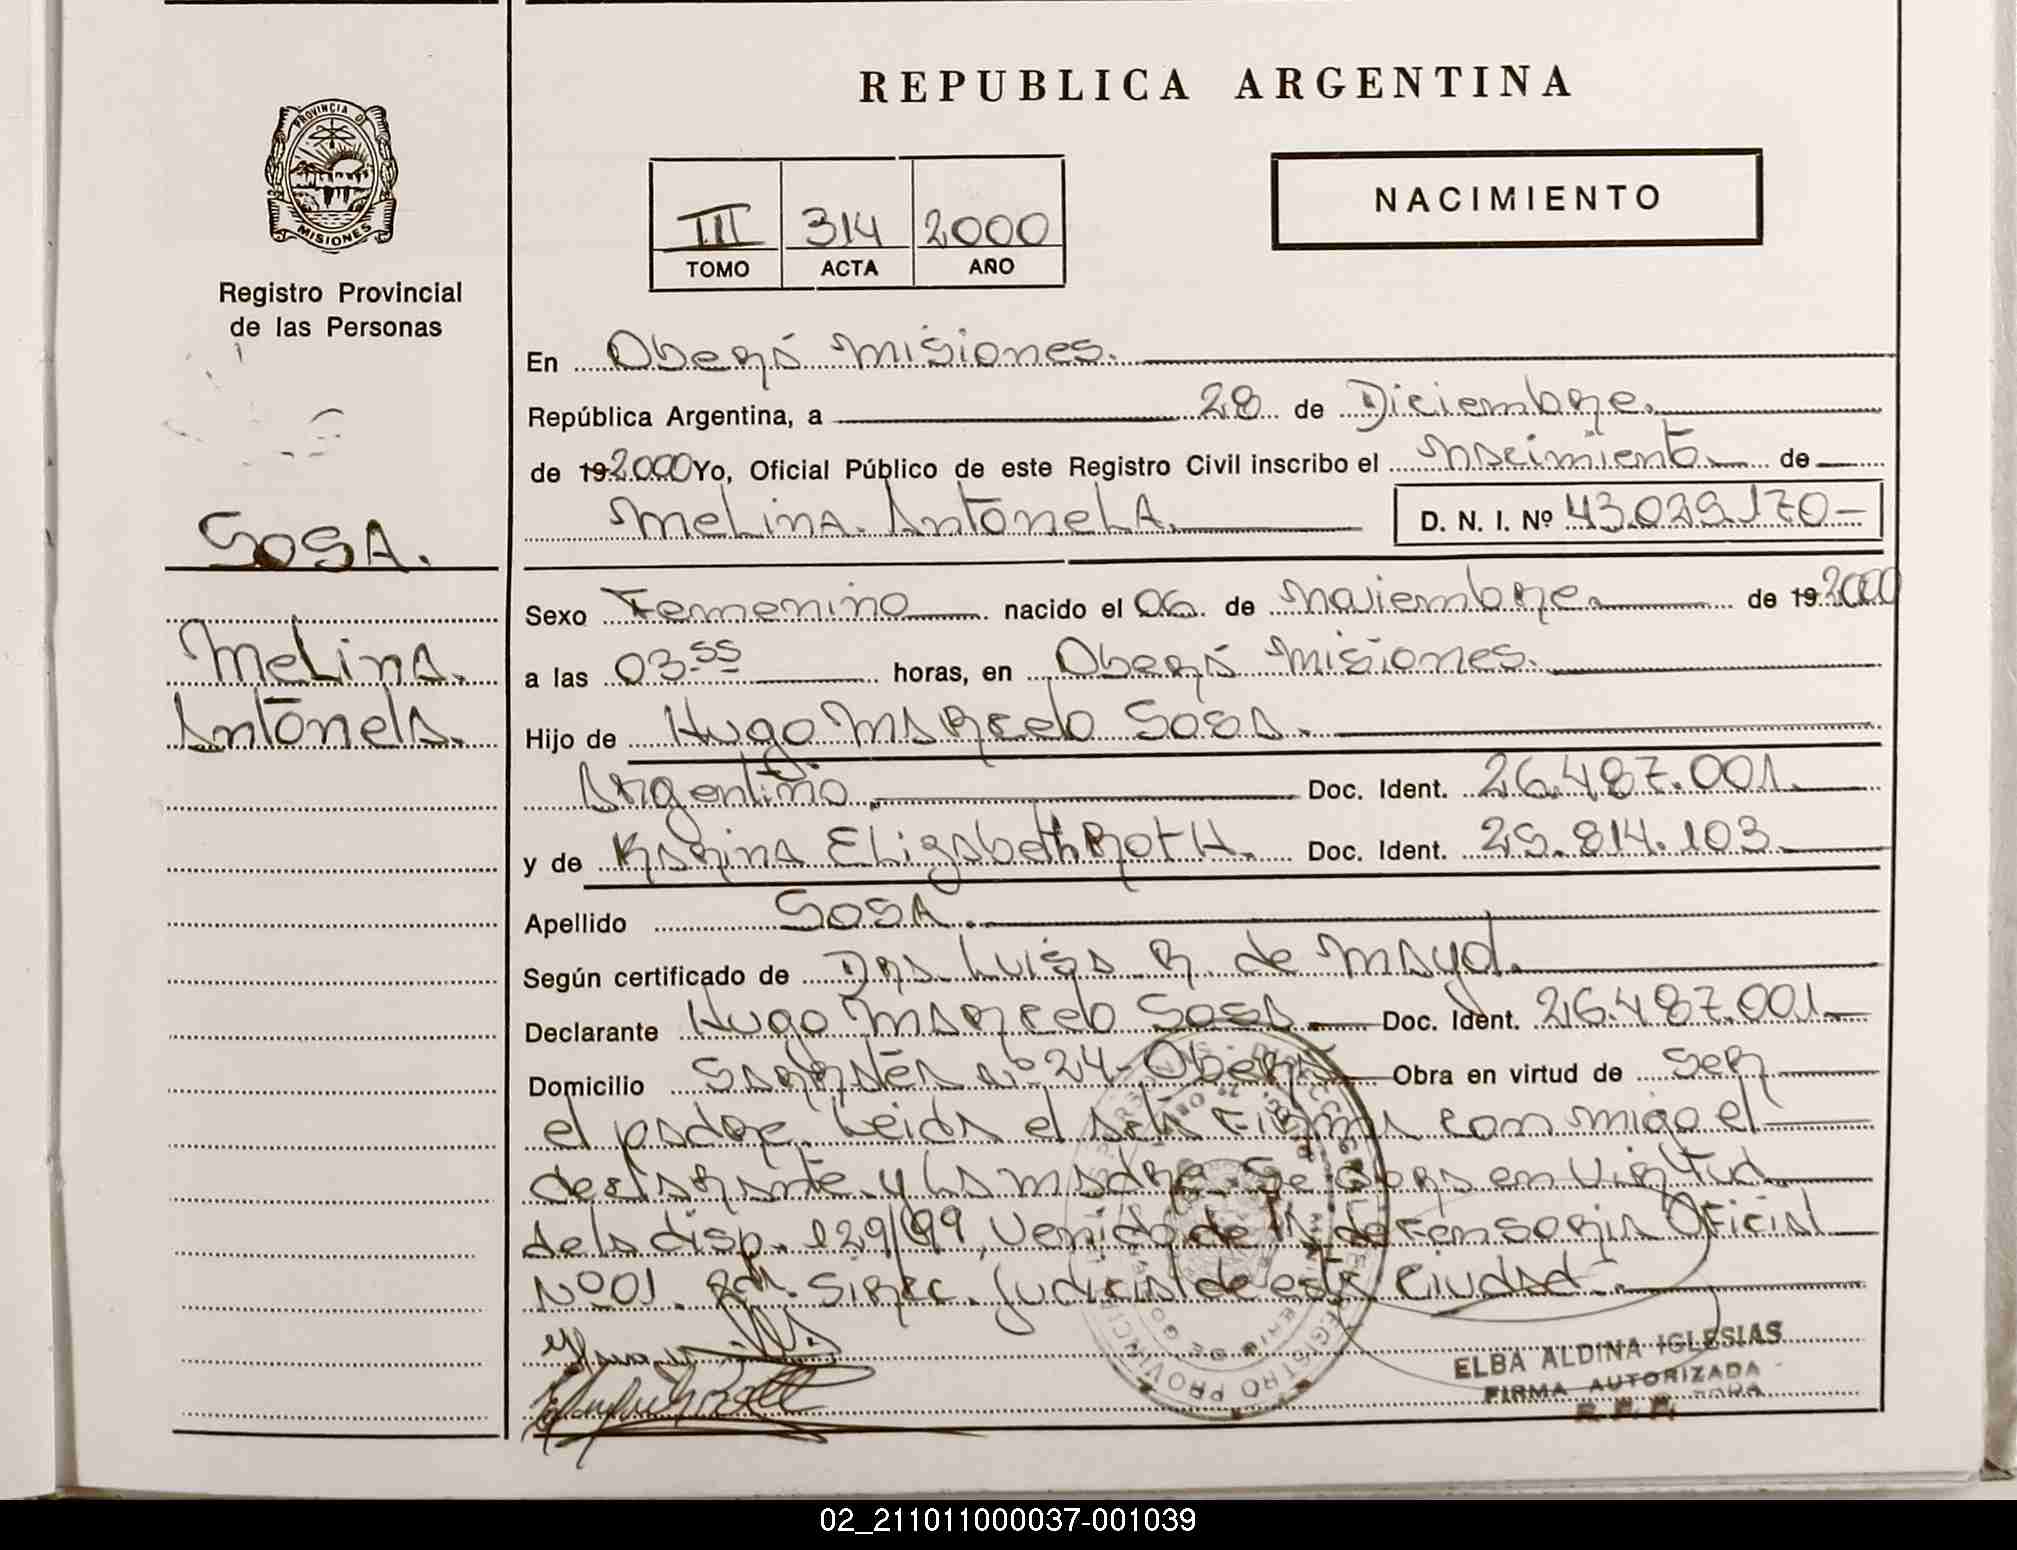 REPUBLICA ARGENTINA
PROVINCIA DE
MISIONES
Registro Provincial
de las Personas
III 314 2000
TOMO ACTA AÑO
NACIMIENTO
SOSA.
Melina.
Antonela.
En Oberá Misiones.
República Argentina, a 28 de Diciembre.
de 19 2000 Yo, Oficial Público de este Registro Civil inscribo el Nacimiento de
Melina Antonela. D. N. I. Nº 43.029.170-
Sexo Femenino nacido el 06 de Noviembre de 19 2000
a las 03.55 horas, en Oberá Misiones.
Hijo de Hugo Marcelo Sosa.
Argentino Doc. Ident. 26.487.001.
y de Karina Elizabeth Roth. Doc. Ident. 25.814.103.
Apellido SOSA.
Según certificado de Dra. Luisa R. de Mayol.
Declarante Hugo Marcelo Sosa Doc. Ident. 26.487.001
Domicilio nº 24-Oberá Obra en virtud de ser
el padre. Leida el acta Firma con migo el
declarante y la madre. Se obra en virtud
de la disp. 129/99, venido de la defensoria Oficial
Nº 01. Judicial de esta Ciudad.
ELBA ALDINA IGLESIAS
FIRMA AUTORIZADA
02_211011000037-001039